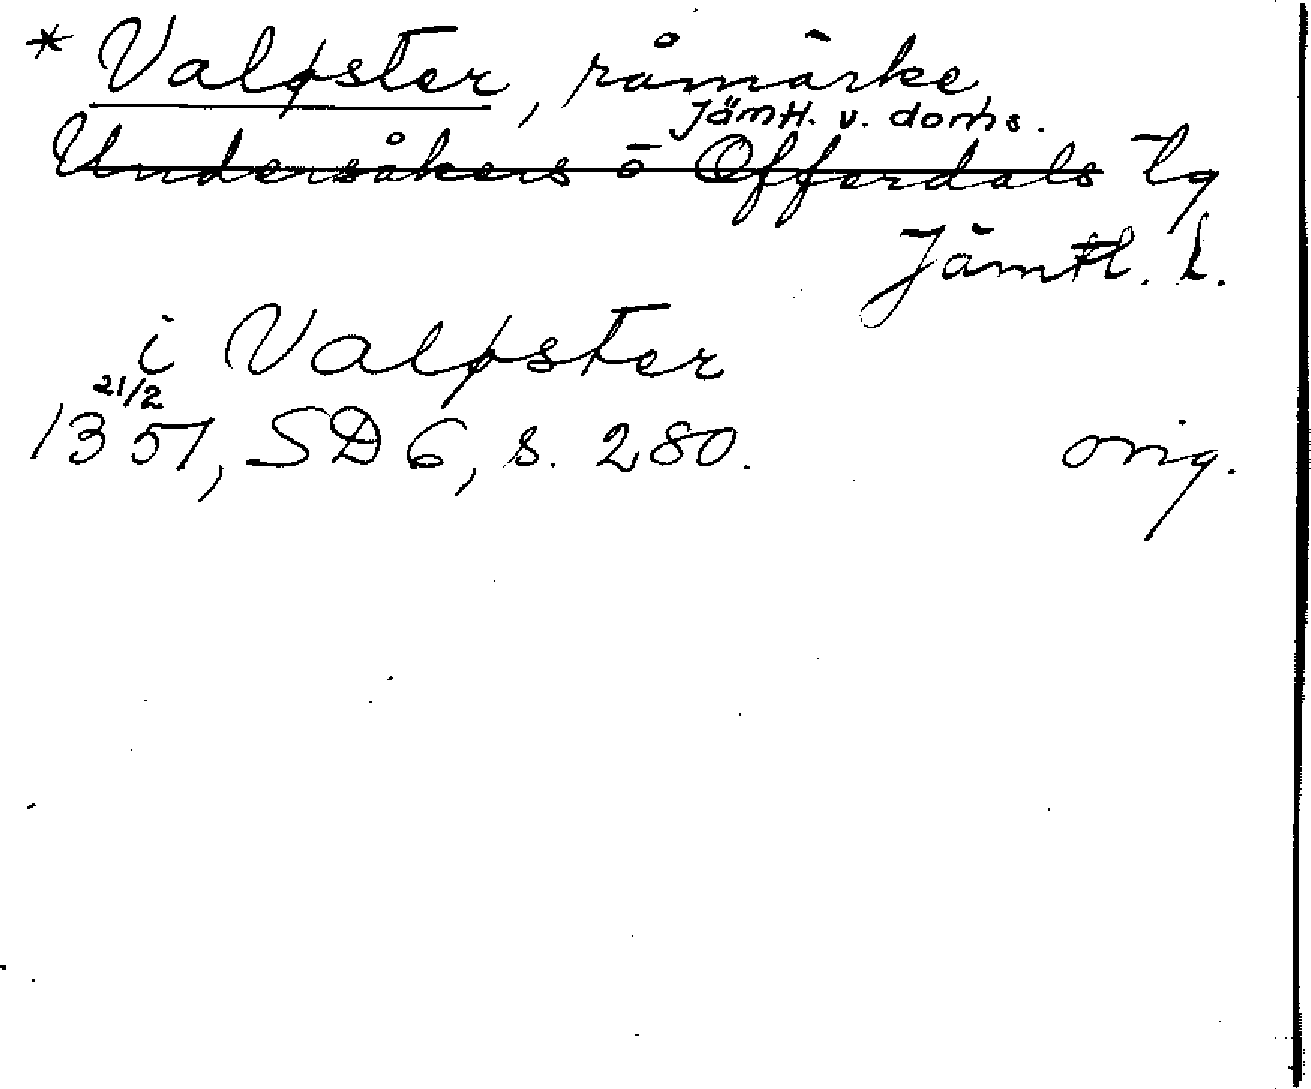 * Valpster, råmärke
Jämtl. v. doms.
Undersåkers o Offerdals tg
Jämtl. L.
i Valpster
21/2
1351, SD 6, s. 280. orig.